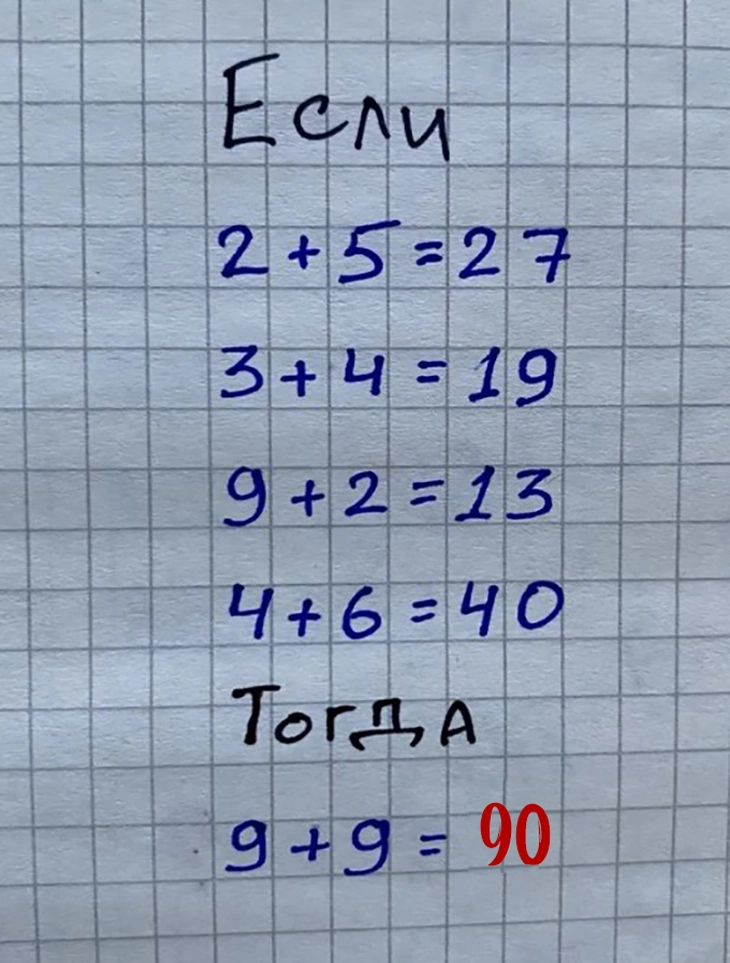 Если
2 + 5 = 27
3 + 4 = 19
9 + 2 = 13
4 + 6 = 40
Тогда
9 + 9 = 90